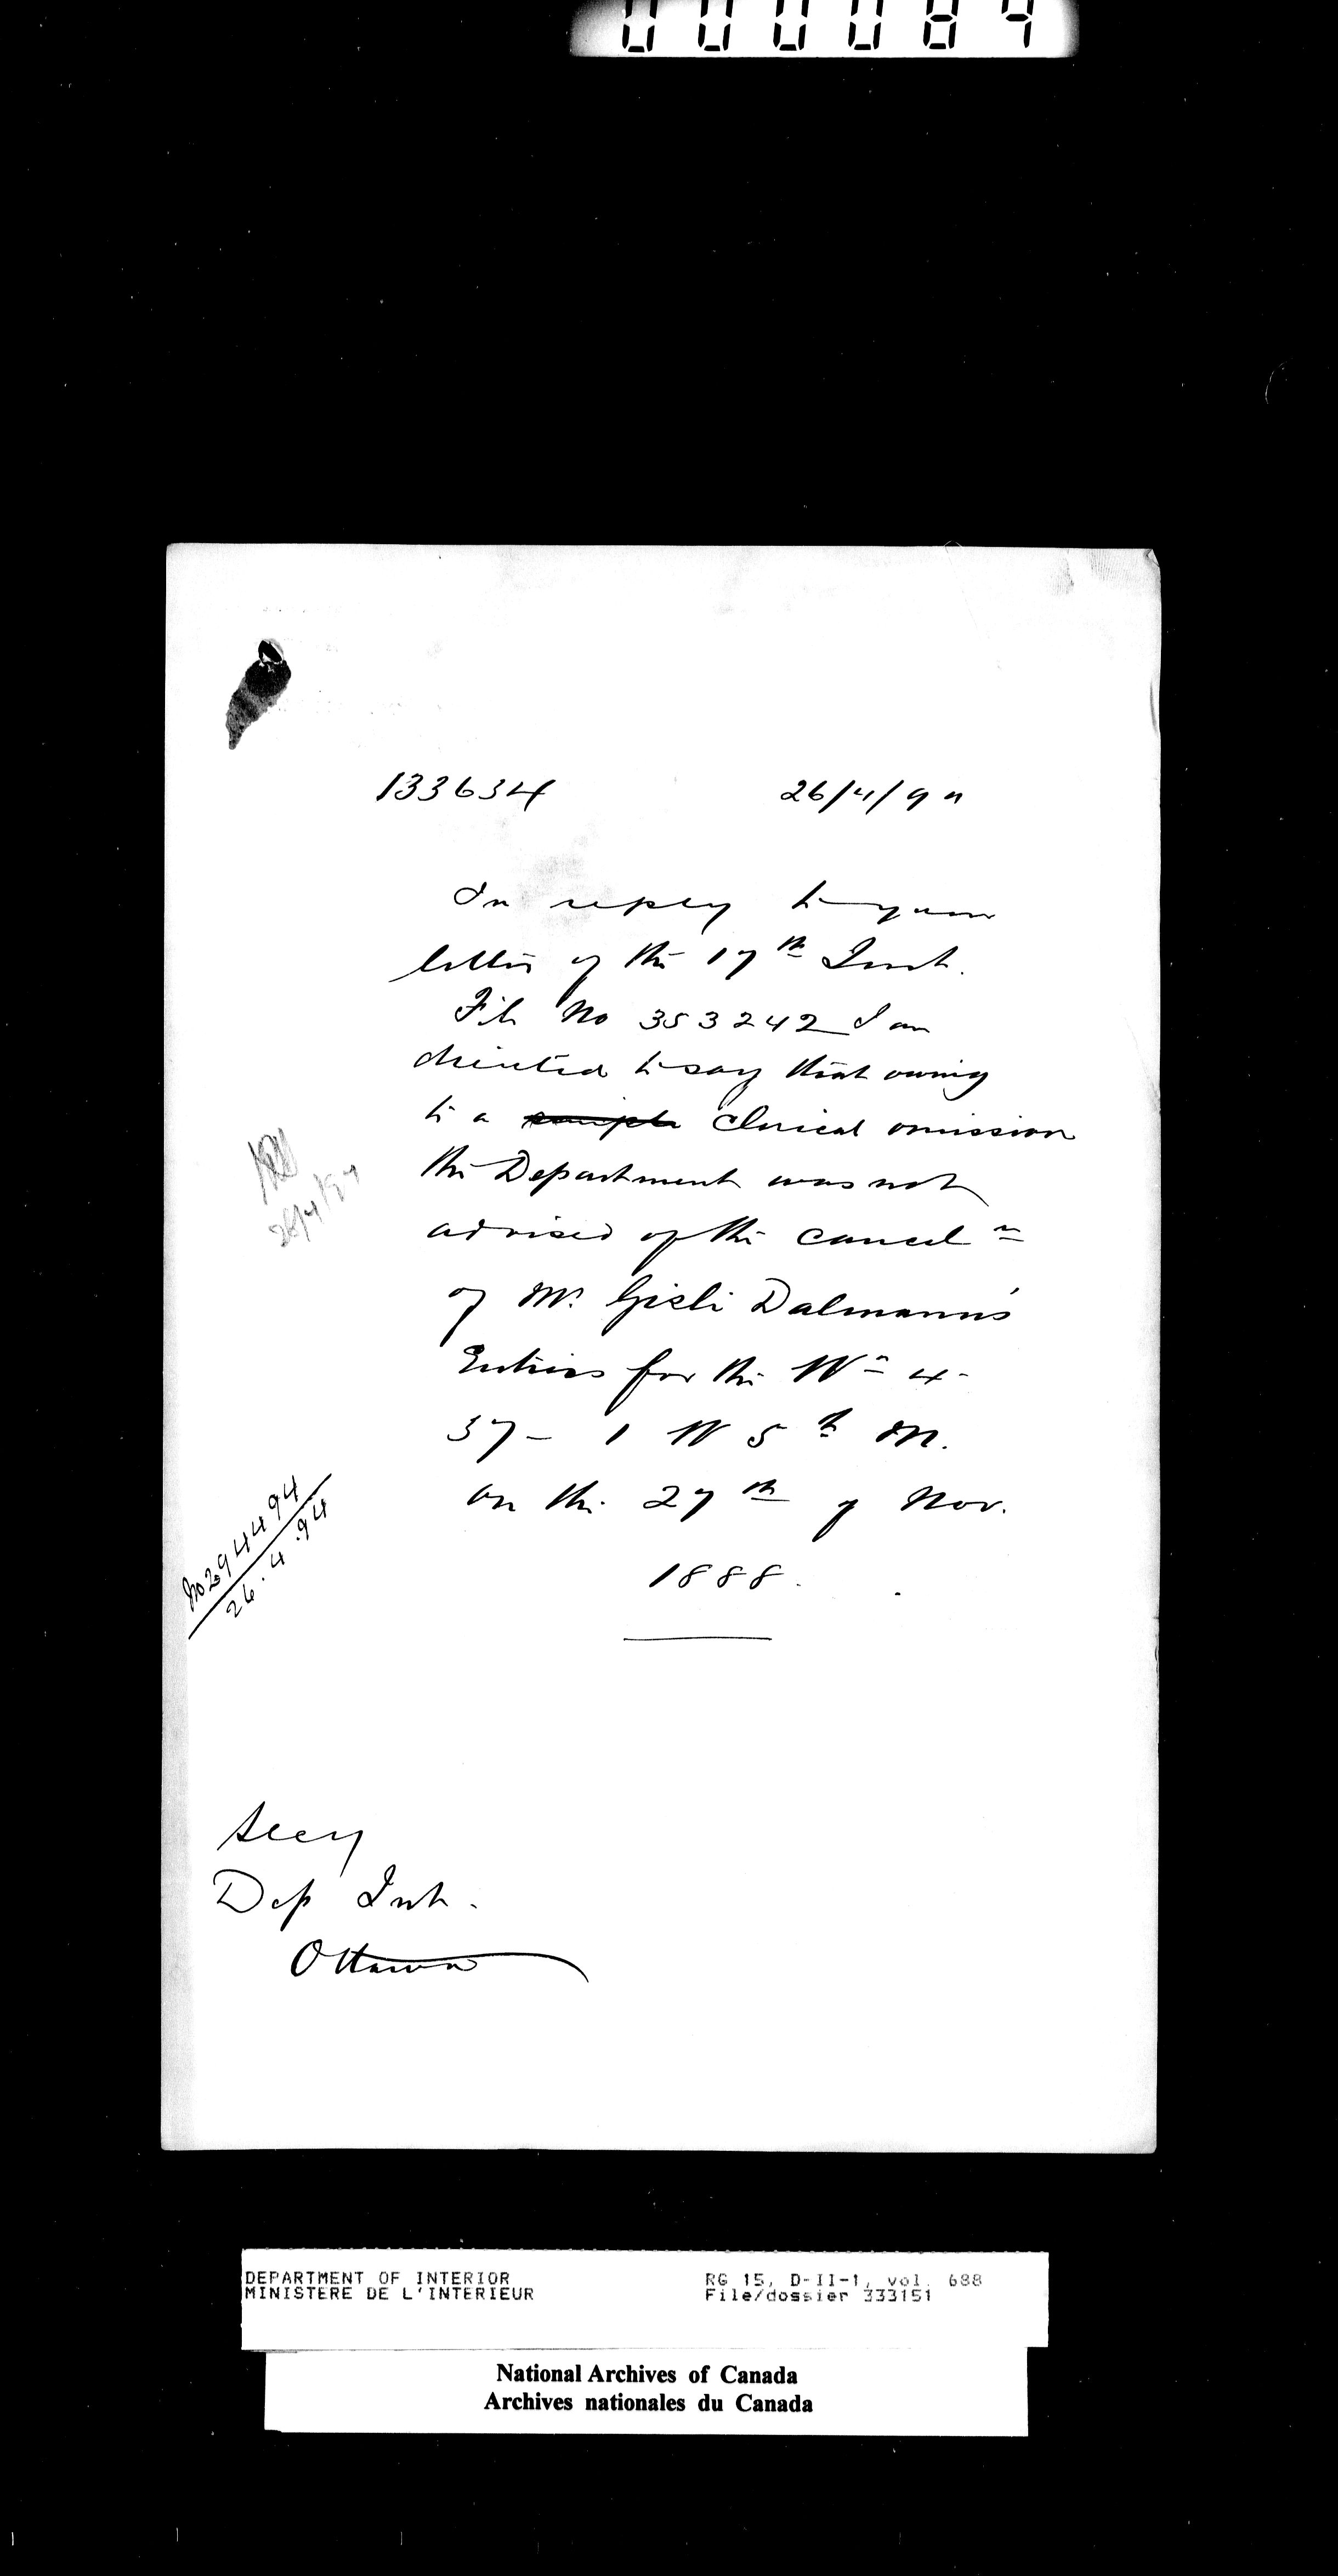 000084
133634 26/4/94
In reply to your
letter of the 17th Inst.
File No 353242 I am
directed to say that owing
to a simple clerical omission
the Department was not
advised of the canceln
of Mr. Gisli Dalmann's
Entries for the 4-
37 - 1 W 5th M.
on the 27th of Nov.
1888.
26/4/94
No 294494
26.4.94
Secy
Dep Int.
Ottawa
DEPARTMENT OF INTERIOR RG 15, D-II-1, vol. 688
MINISTERE DE L'INTERIEUR File/dossier 333151
National Archives of Canada
Archives nationales du Canada